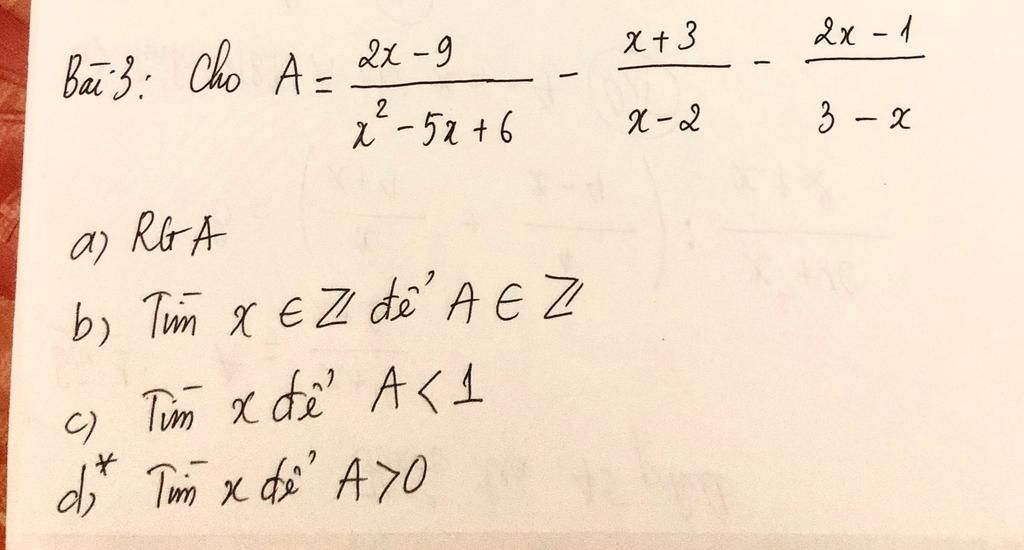 Bài 3: Cho A = \frac{2x - 9}{x^2 - 5x + 6} - \frac{x + 3}{x - 2} - \frac{2x - 1}{3 - x}
a) RGA
b) Tìm x ∈ Z để A ∈ Z
c) Tìm x để A < 1
d)* Tìm x để A > 0